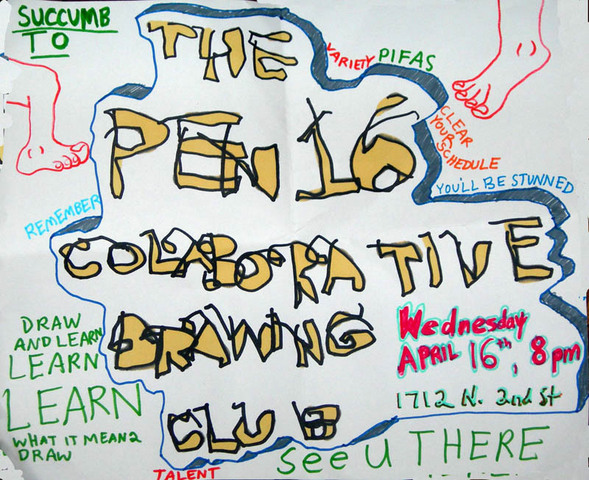 SUCCUMB
TO
THE
VARIETY PIFAS
PEN 16
CLEAR
YOUR
SCHEDULE
YOU'LL BE STUNNED
REMEMBER
COLABORATIVE
DRAWING
CLUB
Wednesday
APRIL 16th, 8pm
1712 N. 2nd St
DRAW
AND LEARN
LEARN
LEARN
WHAT IT MEAN2
DRAW
See U THERE
TALENT